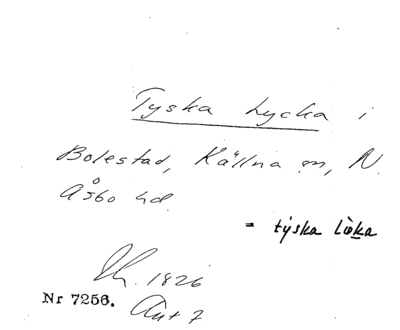 Tyska Lycka i
Bolestad, Källna sn, N.
Åsbo hd.
= týska lỳka
1826
Nr 7256.
Akt 7